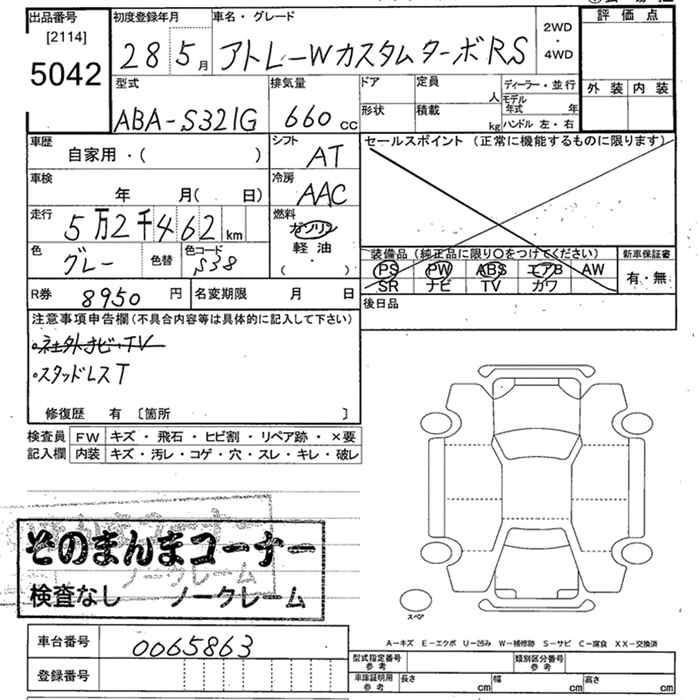 出品番号 初度登録年月 車名・グレード 評価点
[2114]
5042
28 5月 アトレーWカスタムターボRS 2WD・4WD
外装 内装
型式 排気量 ドア 定員 人 ディーラー・並行
ABA-S321G 660cc 形状 積載 kg モデル年式 年
ハンドル 左・右
車歴 シフト セールスポイント (正常に機能するものに限ります)
自家用・( ) AT
車検 冷房
年 月( 日) AAC
走行 燃料
5万2千462km ガソリン
軽油
( ・ )
色 色替 色コード 装備品(純正品に限り○をつけてください) 新車保証書
グレー S38 PS PW ABS エアB AW 有・無
SR ナビ TV カワ
R券 8950円 名変期限 月 日 後日品
注意事項申告欄(不具合内容等は具体的に記入して下さい)
・社外ナビ・TV
・スタッドレスT
修復歴 有 〔箇所 〕
検査員 FW キズ・飛石・ヒビ割・リペア跡・×要
記入欄 内装 キズ・汚レ・コゲ・穴・スレ・キレ・破レ
そのまんまコーナー
検査なし ノークレーム
スペア
車台番号 0065863
A-キズ E-エクボ U-凹み W-補修跡 S-サビ C-腐食 XX-交換済
登録番号
型式指定番号 参考 類別区分番号 参考
車庫証明用 参考 長さ cm 幅 cm 高さ cm